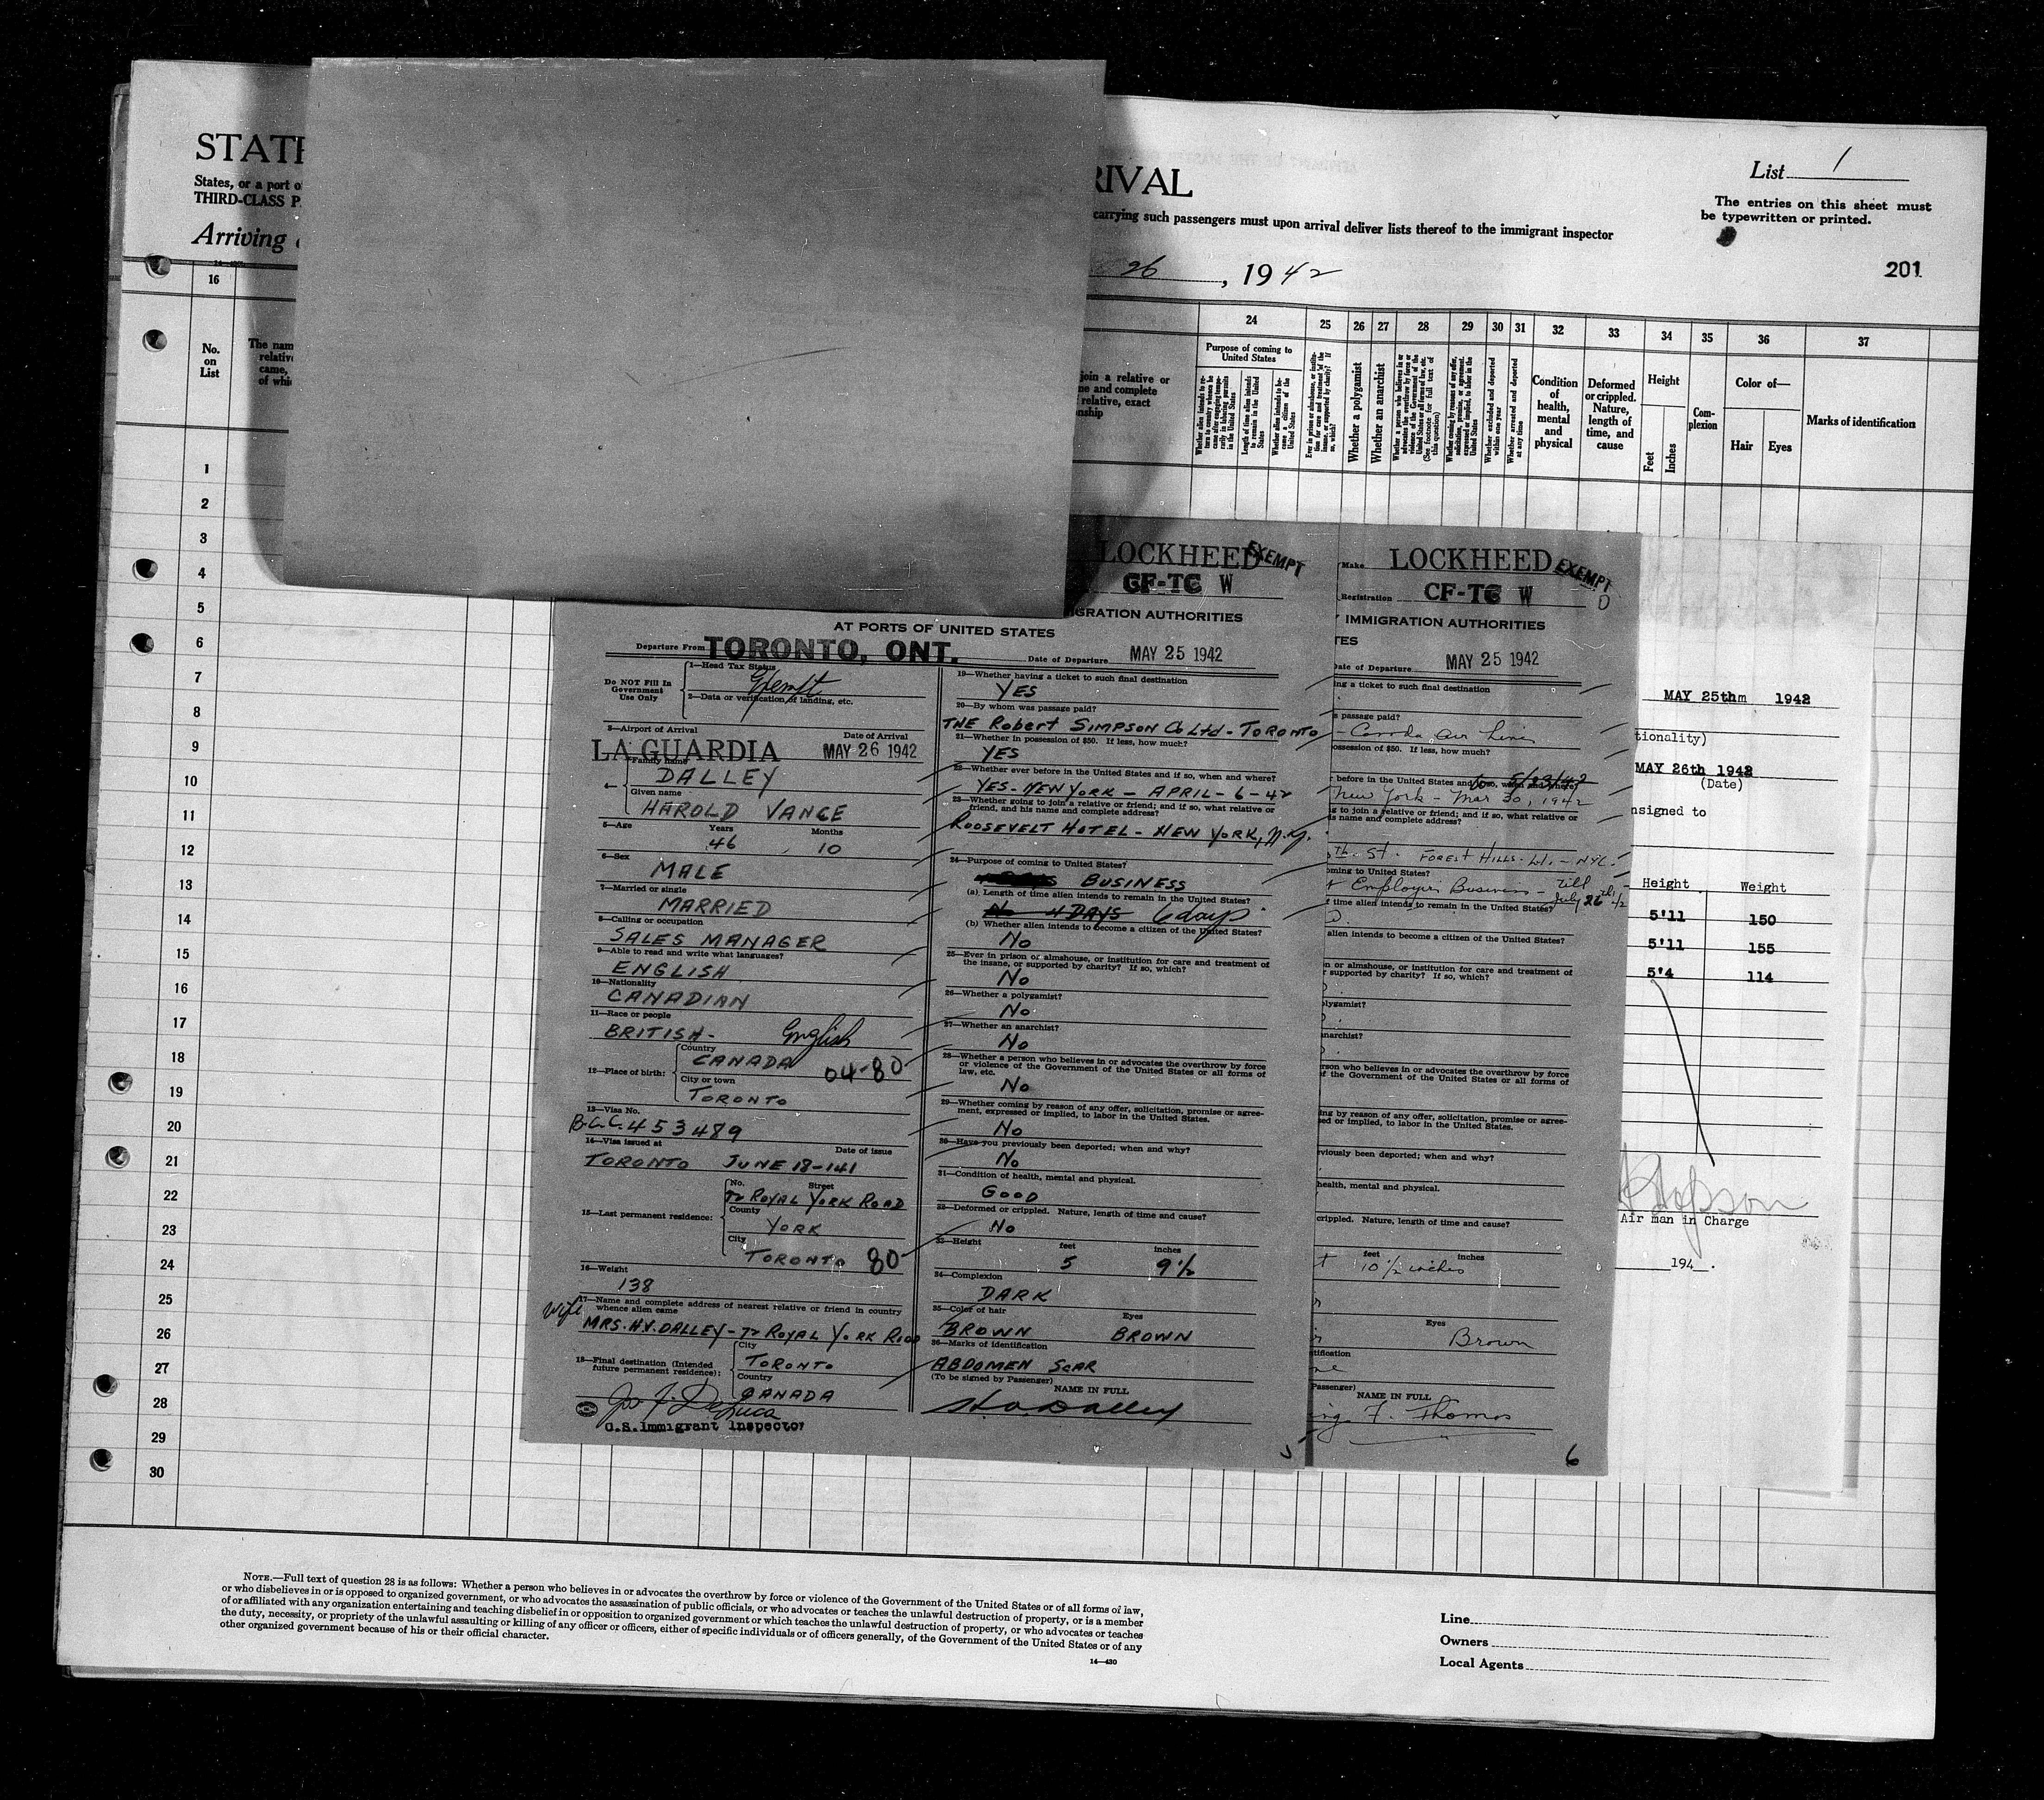 STATE
RIVAL
List 1
States, or a port o
THIRD-CLASS P
carrying such passengers must upon arrival deliver lists thereof to the immigrant inspector
The entries on this sheet must
be typewritten or printed.
Arriving
26, 1942
201
16
24 25 26 27 28 29 30 31 32 33 34 35 36 37
No.
on
List
The nam
relativ
came,
of whi
join a relative or
me and complete
relative, exact
onship
Purpose of coming to
United States
Whether a polygamist
Whether an anarchist
Condition
of
health,
mental
and
physical
Deformed
or crippled.
Nature,
length of
time, and
cause
Height
Feet
Inches
Com-
plexion
Color of—
Hair
Eyes
Marks of identification
1
2
3
4
5
6
7
8
9
10
11
12
13
14
15
16
17
18
19
20
21
22
23
24
25
26
27
28
29
30
LOCKHEED EXEMPT
CF-TC W
IGRATION AUTHORITIES
AT PORTS OF UNITED STATES
Departure From TORONTO, ONT.
Date of Departure MAY 25 1942
Do NOT Fill In
Government
Use Only
1—Head Tax Status
Exempt
2—Data or verification of landing, etc.
3—Airport of Arrival
Date of Arrival
LA GUARDIA MAY 26 1942
4—
Family name
DALLEY
Given name
HAROLD VANCE
5—Age Years Months
46 10
6—Sex
MALE
7—Married or single
MARRIED
8—Calling or occupation
SALES MANAGER
9—Able to read and write what languages?
ENGLISH
10—Nationality
CANADIAN
11—Race or people
BRITISH - English
12—Place of birth:
Country
CANADA 04-80
City or town
TORONTO
13—Visa No.
B.C.C. 453489
14—Visa issued at Date of issue
TORONTO JUNE 18-141
15—Last permanent residence:
No. Street
72 ROYAL YORK ROAD
County
YORK
City
TORONTO 80
16—Weight
138
17—Name and complete address of nearest relative or friend in country
whence alien came
Wife
MRS. H.V. DALLEY - 72 ROYAL YORK ROAD
18—Final destination (Intended
future permanent residence):
City
TORONTO
Country
CANADA
U.S. Immigrant Inspector
19—Whether having a ticket to such final destination
YES
20—By whom was passage paid?
THE Robert SIMPSON Co Ltd - TORONTO
21—Whether in possession of $50. If less, how much?
YES
22—Whether ever before in the United States and if so, when and where?
YES - NEW YORK - APRIL - 6 - 42
23—Whether going to join a relative or friend; and if so, what relative or
friend, and his name and complete address?
ROOSEVELT HOTEL - NEW YORK, N.Y.
24—Purpose of coming to United States?
BUSINESS
(a) Length of time alien intends to remain in the United States?
No 4 DAYS 6 days
(b) Whether alien intends to become a citizen of the United States?
No
25—Ever in prison or almshouse, or institution for care and treatment of
the insane, or supported by charity? If so, which?
No
26—Whether a polygamist?
No
27—Whether an anarchist?
No
28—Whether a person who believes in or advocates the overthrow by force
or violence of the Government of the United States or all forms of
law, etc.
No
29—Whether coming by reason of any offer, solicitation, promise or agree-
ment, expressed or implied, to labor in the United States.
No
30—Have you previously been deported; when and why?
No
31—Condition of health, mental and physical.
GOOD
32—Deformed or crippled. Nature, length of time and cause?
No
33—Height feet inches
5 9½
34—Complexion
DARK
35—Color of hair Eyes
BROWN BROWN
36—Marks of identification
ABDOMEN SCAR
(To be signed by Passenger)
NAME IN FULL
H.V. Dalley
5
Make LOCKHEED EXEMPT
Registration CF-TC W
IMMIGRATION AUTHORITIES
TES
Date of Departure MAY 25 1942
ing a ticket to such final destination
s passage paid?
- Canada Air Lines
ossession of $50. If less, how much?
before in the United States and if so, when and where?
New York - Mar 30, 1942
ng to join a relative or friend; and if so, what relative or
s name and complete address?
th. St. FOREST HILLS - L.I. - NYC.
oming to United States?
Employers Business - till
July 26th/42
f time alien intends to remain in the United States?
alien intends to become a citizen of the United States?
on or almshouse, or institution for care and treatment of
r supported by charity? If so, which?
olygamist?
narchist?
erson who believes in or advocates the overthrow by force
of the Government of the United States or all forms of
ing by reason of any offer, solicitation, promise or agree-
sed or implied, to labor in the United States.
eviously been deported; when and why?
health, mental and physical.
crippled. Nature, length of time and cause?
feet inches
10½ inches
Eyes
Brown
tification
ne
Passenger)
NAME IN FULL
F. Thomas
6
MAY 25thm 1942
tionality)
MAY 26th 1942
(Date)
nsigned to
Height Weight
5'11 150
5'11 155
5'4 114
Air man in Charge
194 .
NOTE.—Full text of question 28 is as follows: Whether a person who believes in or advocates the overthrow by force or violence of the Government of the United States or of all forms of law,
or who disbelieves in or is opposed to organized government, or who advocates the assassination of public officials, or who advocates or teaches the unlawful destruction of property, or is a member
of or affiliated with any organization entertaining and teaching disbelief in or opposition to organized government or which teaches the unlawful destruction of property, or who advocates or teaches
the duty, necessity, or propriety of the unlawful assaulting or killing of any officer or officers, either of specific individuals or of officers generally, of the Government of the United States or of any
other organized government because of his or their official character.
14—430
Line
Owners
Local Agents